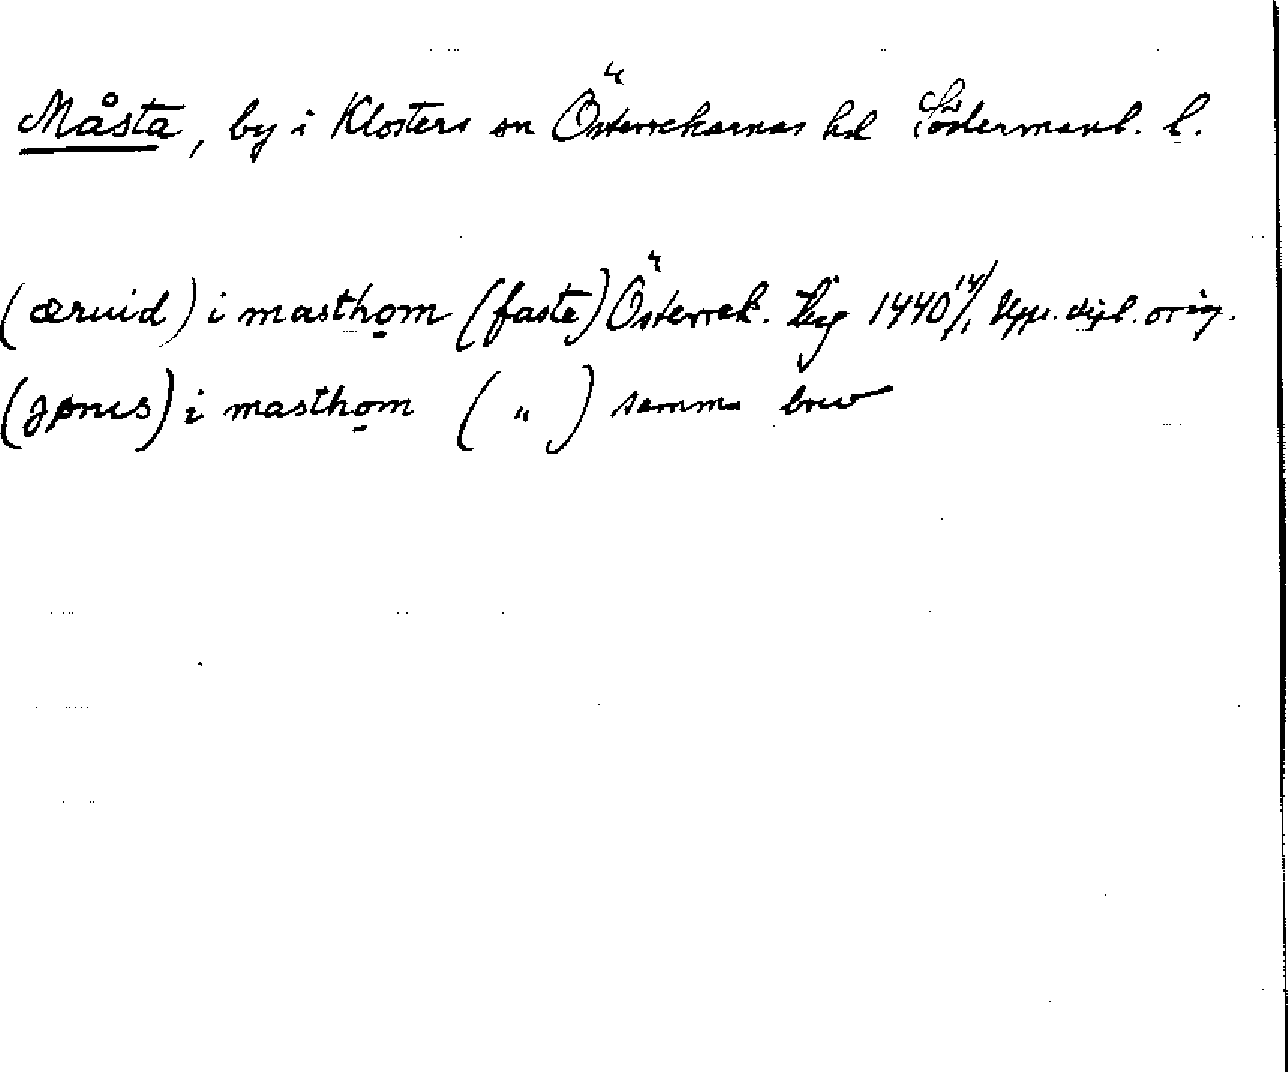 Måsta, by i Klosters sn Österrekarnas hd Södermanl. l.
(æruid) i masthom (faste) Österrek. 1440 14/1 Upps. dipl. orig.
(jønis) i masthom ( " ) samma brev